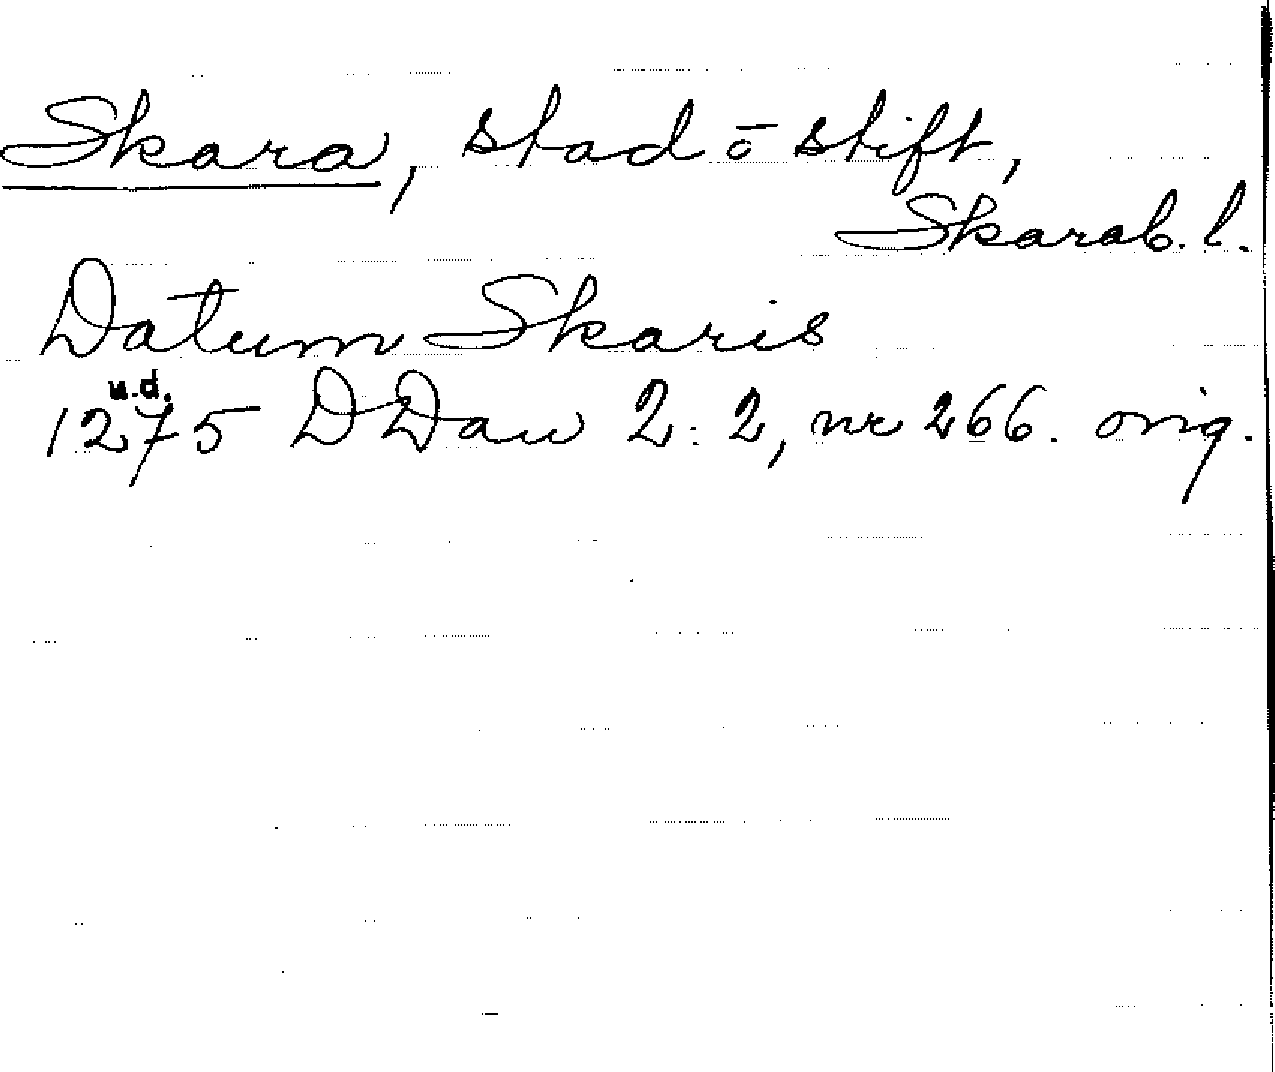 Skara, stad ō stift,
Skarab. l.
Datum Skaris
u.d.
1275 DDan 2:2, nr 266. orig.